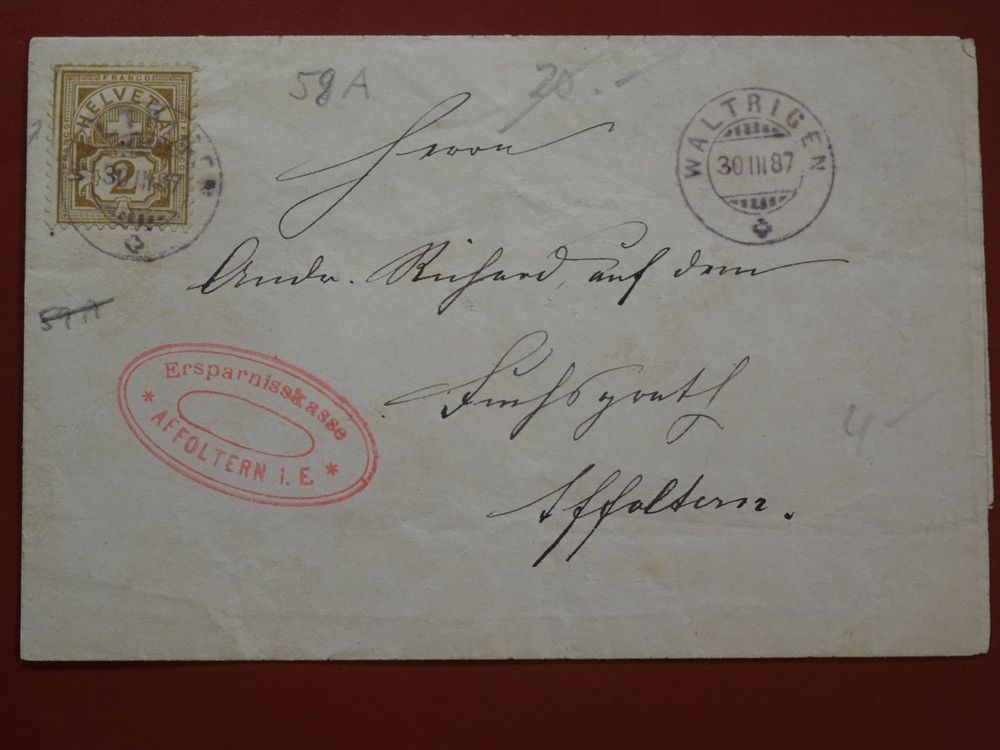 FRANCO
HELVETIA
2
58 A
20.-
WALTRIGEN
30 III 87
Herrn
Andr. Richard, auf dem
Affoltern.
59 A
Ersparnisskasse
* AFFOLTERN i. E. *
4 -